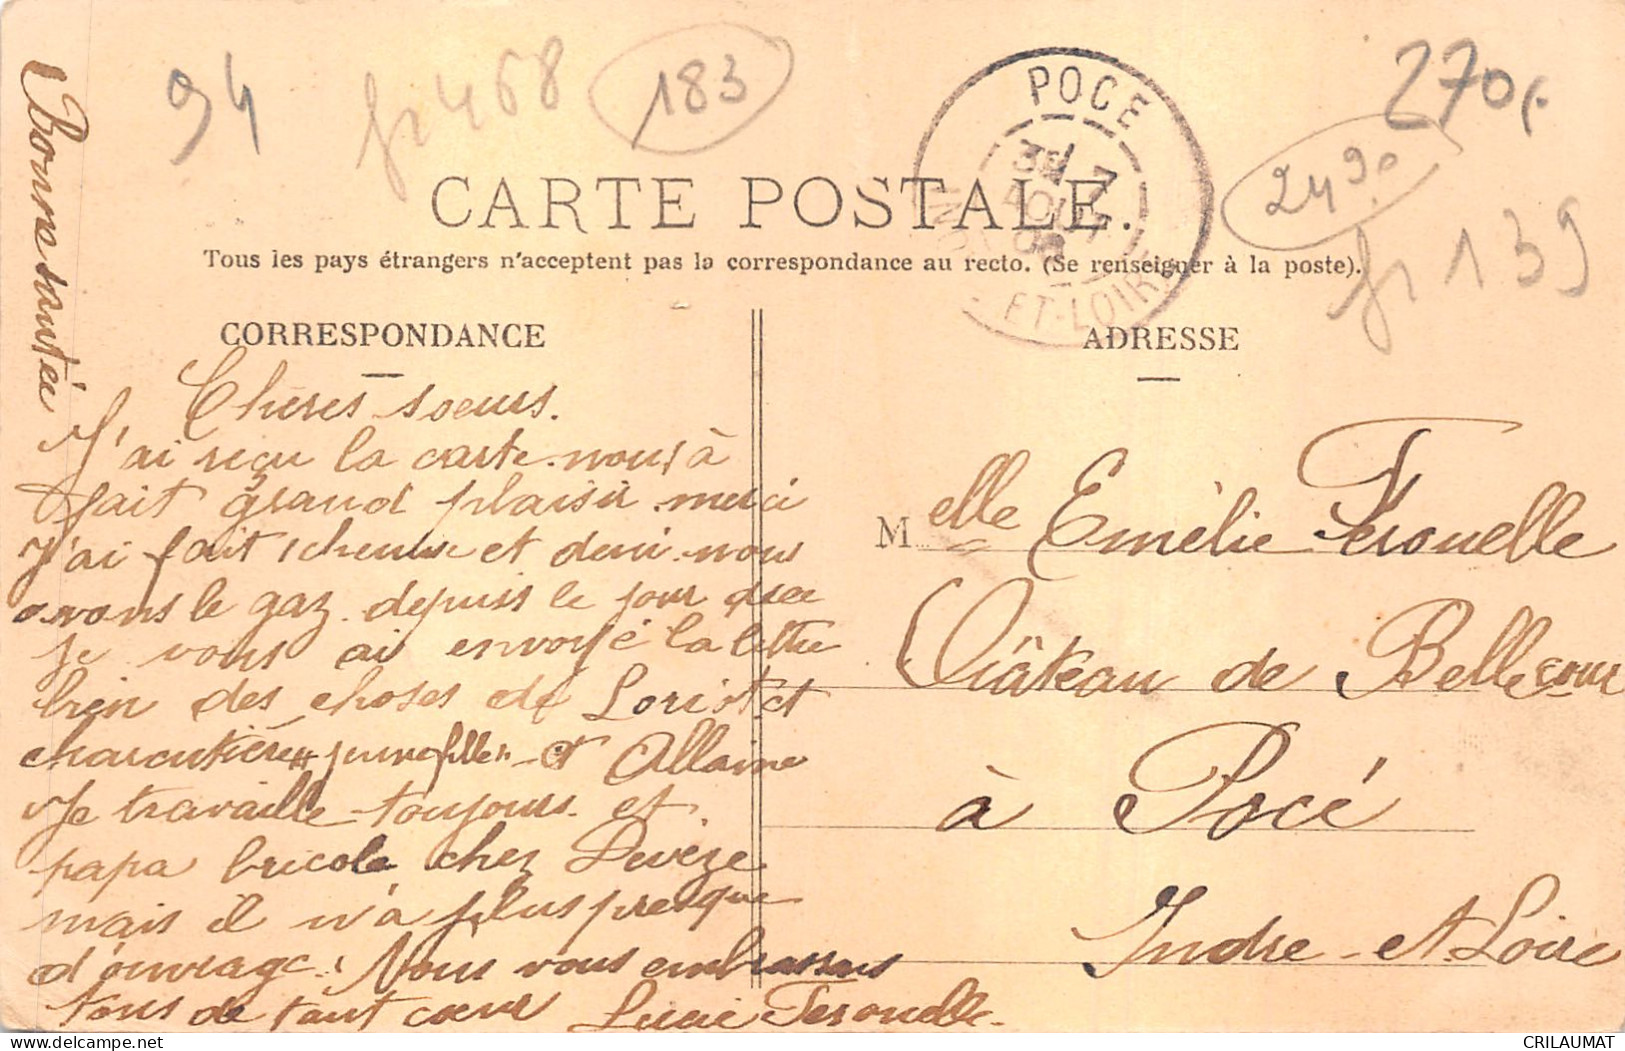 94
fr 468
183
270f
24 90
fr 139
POCE
3E / 7
AOUT
08
INDRE-ET-LOIRE
CARTE POSTALE.
Tous les pays étrangers n'acceptent pas la correspondance au recto. (Se renseigner à la poste).
CORRESPONDANCE
ADRESSE
Bonne santée
Chères soeurs.
J'ai reçu la carte nous à
fait grand plaisir merci
J'ai fait et demi nous
avons le gaz depuis le jour que
je vous ai envoyé la lettre
bien des choses de Loriot et
charcutière jeune fille et Allaine
Je travaille toujours et
papa bricole chez Devèze
mais il n'a plus presque
d'ouvrage. Nous vous embrassons
tous de tout cœur Lucie Feronelle
Melle Emélie Feronelle
Château de Bellecour
à Pocé
Indre-et-Loire
CRILAUMAT